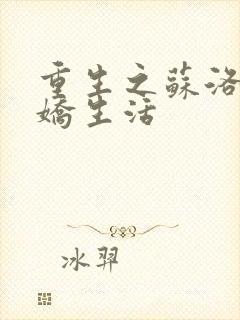 重生之蘇洛
嬌生活
冰羿